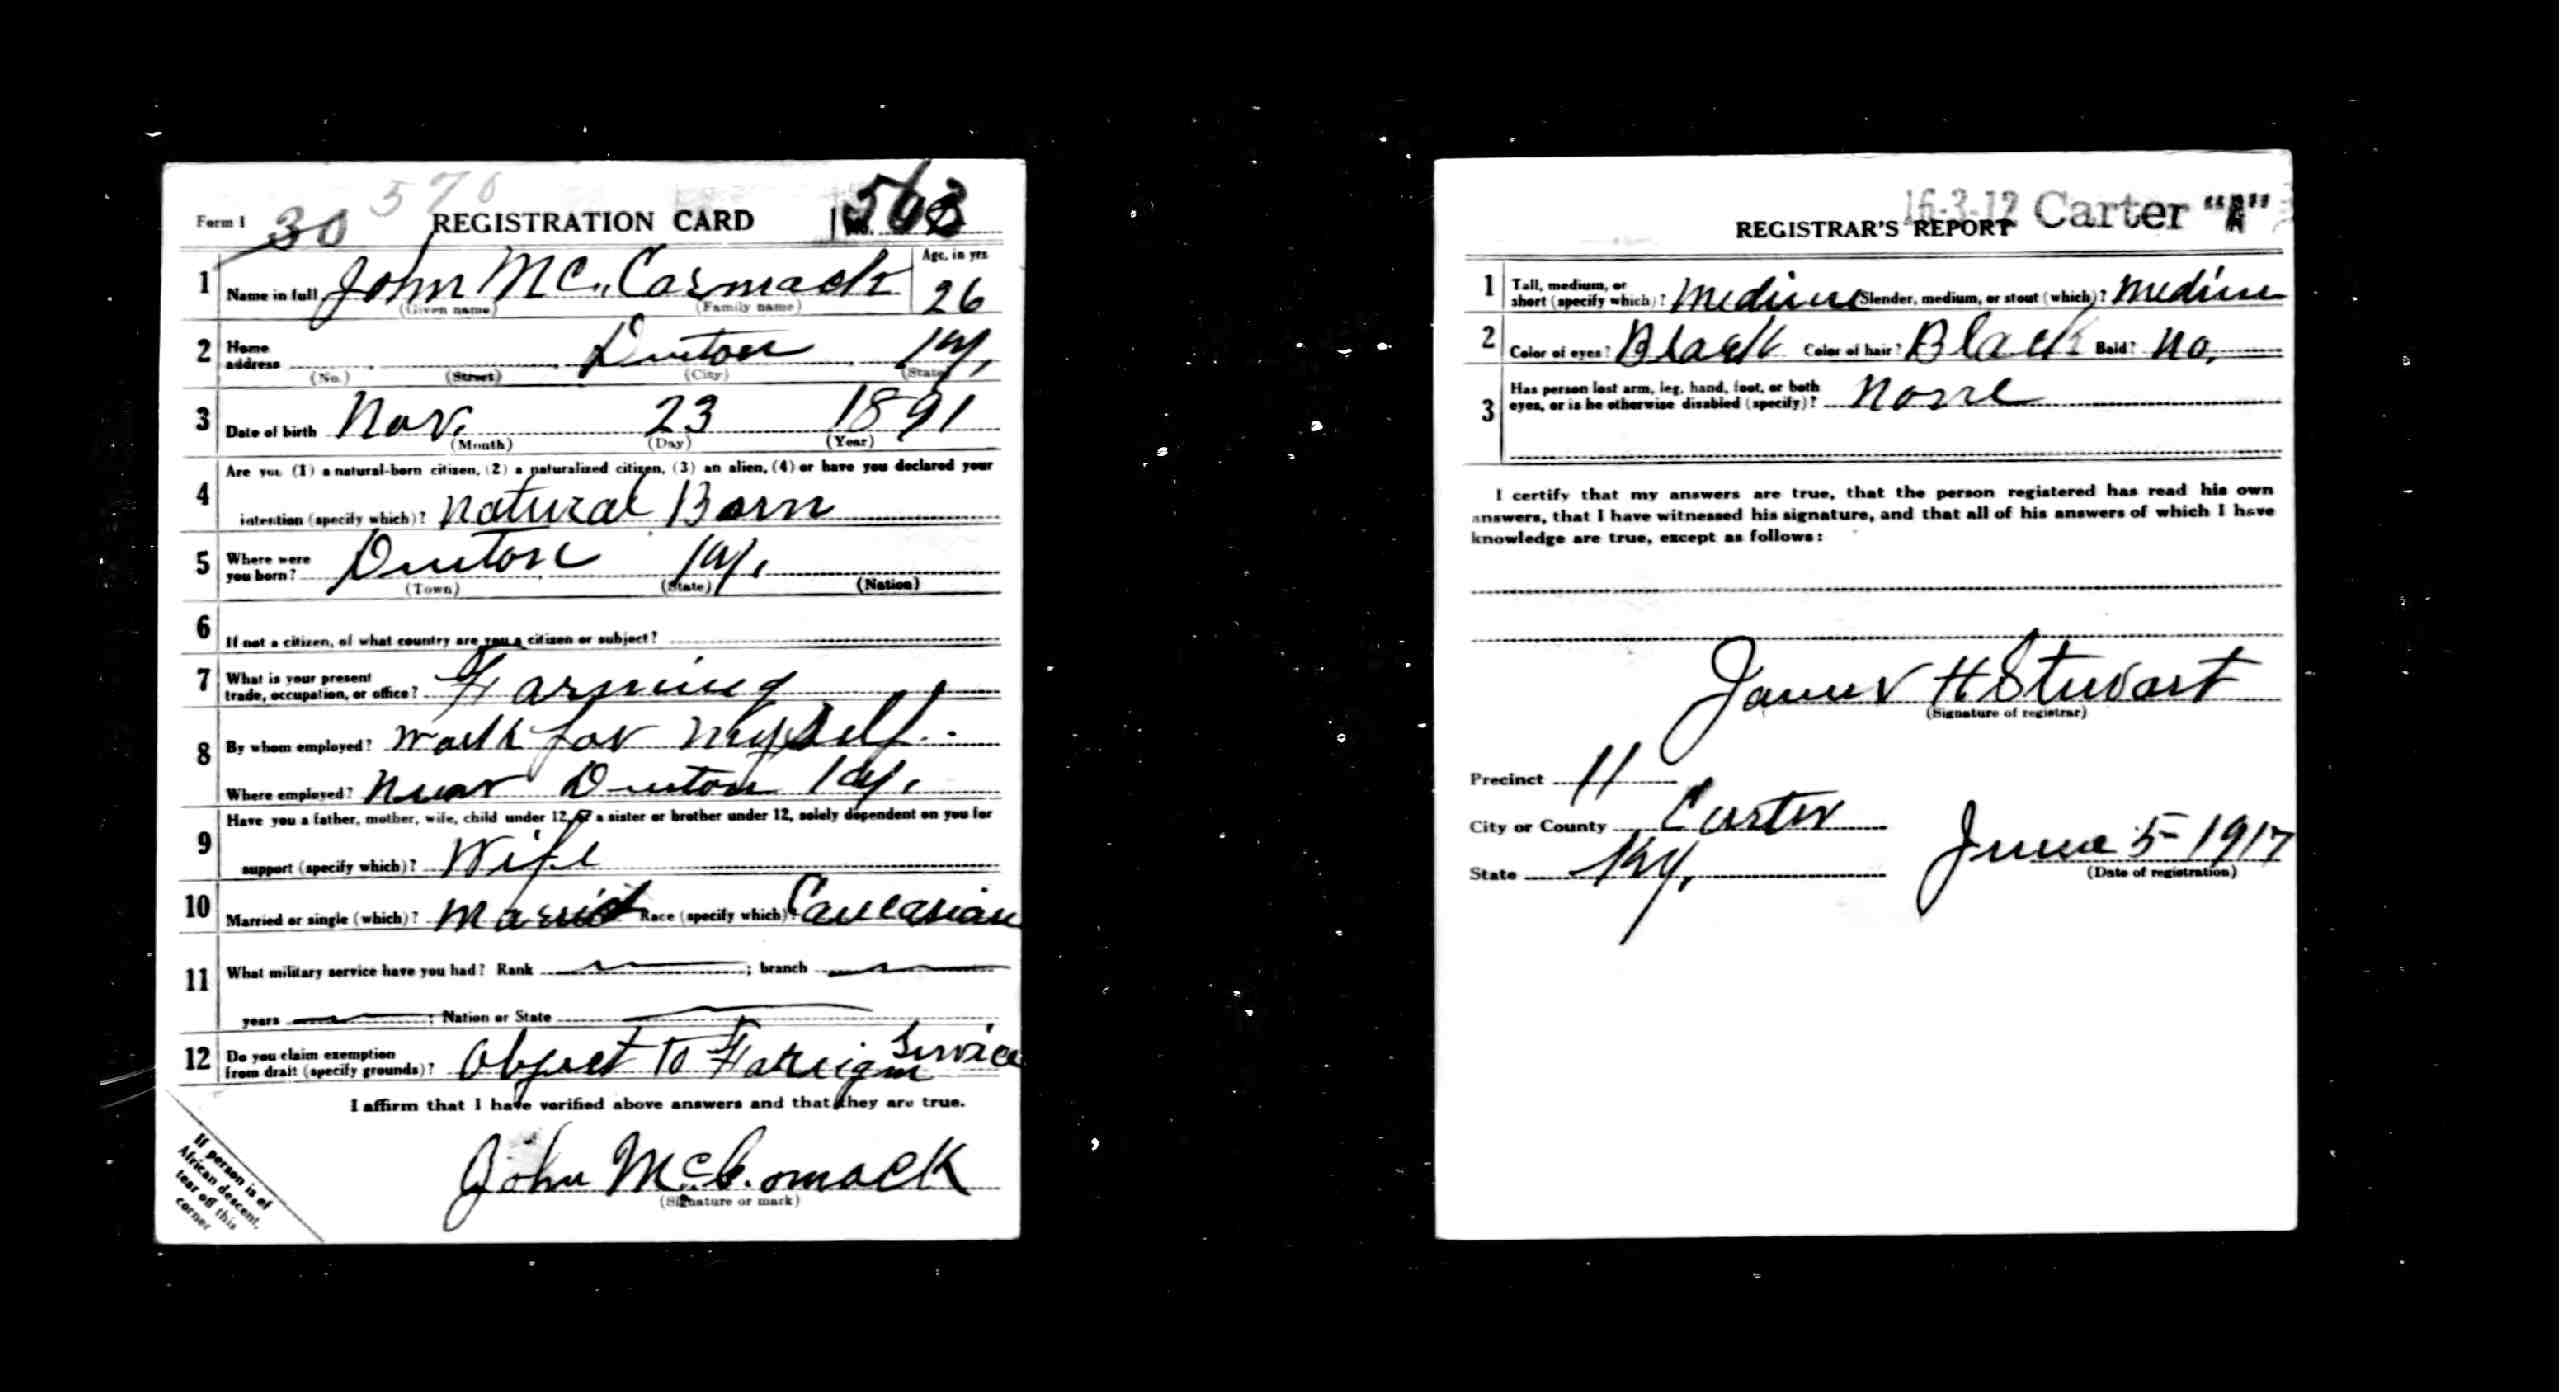 570
Form 1 30 REGISTRATION CARD No.
Age, in yrs.
1 Name in full John Mc. Cormack 26
(Given name) (Family name)
2 Home address Denton Ky.
(No.) (Street) (City) (State)
3 Date of birth Nov. 23 1891
(Month) (Day) (Year)
4 Are you (1) a natural-born citizen, (2) a naturalized citizen, (3) an alien, (4) or have you declared your
intention (specify which)? Natural Born
5 Where were you born? Denton Ky.
(Town) (State) (Nation)
6 If not a citizen, of what country are you a citizen or subject?
7 What is your present
trade, occupation, or office? Farming
8 By whom employed? Work for Myself.
Where employed? Near Denton Ky.
9 Have you a father, mother, wife, child under 12, or a sister or brother under 12, solely dependent on you for
support (specify which)? Wife
10 Married or single (which)? Married Race (specify which)? Caucasian
11 What military service have you had? Rank ; branch
years ; Nation or State
12 Do you claim exemption
from draft (specify grounds)? Object to Fareign Service
I affirm that I have verified above answers and that they are true.
John McComack
(Signature or mark)
If person is of
African descent,
tear off this
corner
16-3-12 Carter "A"
REGISTRAR'S REPORT
1 Tall, medium, or
short (specify which)? Medium Slender, medium, or stout (which)? Medium
2 Color of eyes? Black Color of hair? Black Bald? No.
3 Has person lost arm, leg, hand, foot, or both
eyes, or is he otherwise disabled (specify)? None
I certify that my answers are true, that the person registered has read his own
answers, that I have witnessed his signature, and that all of his answers of which I have
knowledge are true, except as follows:
James H Stewart
(Signature of registrar)
Precinct 11
City or County Carter
State Ky. June 5-1917
(Date of registration)